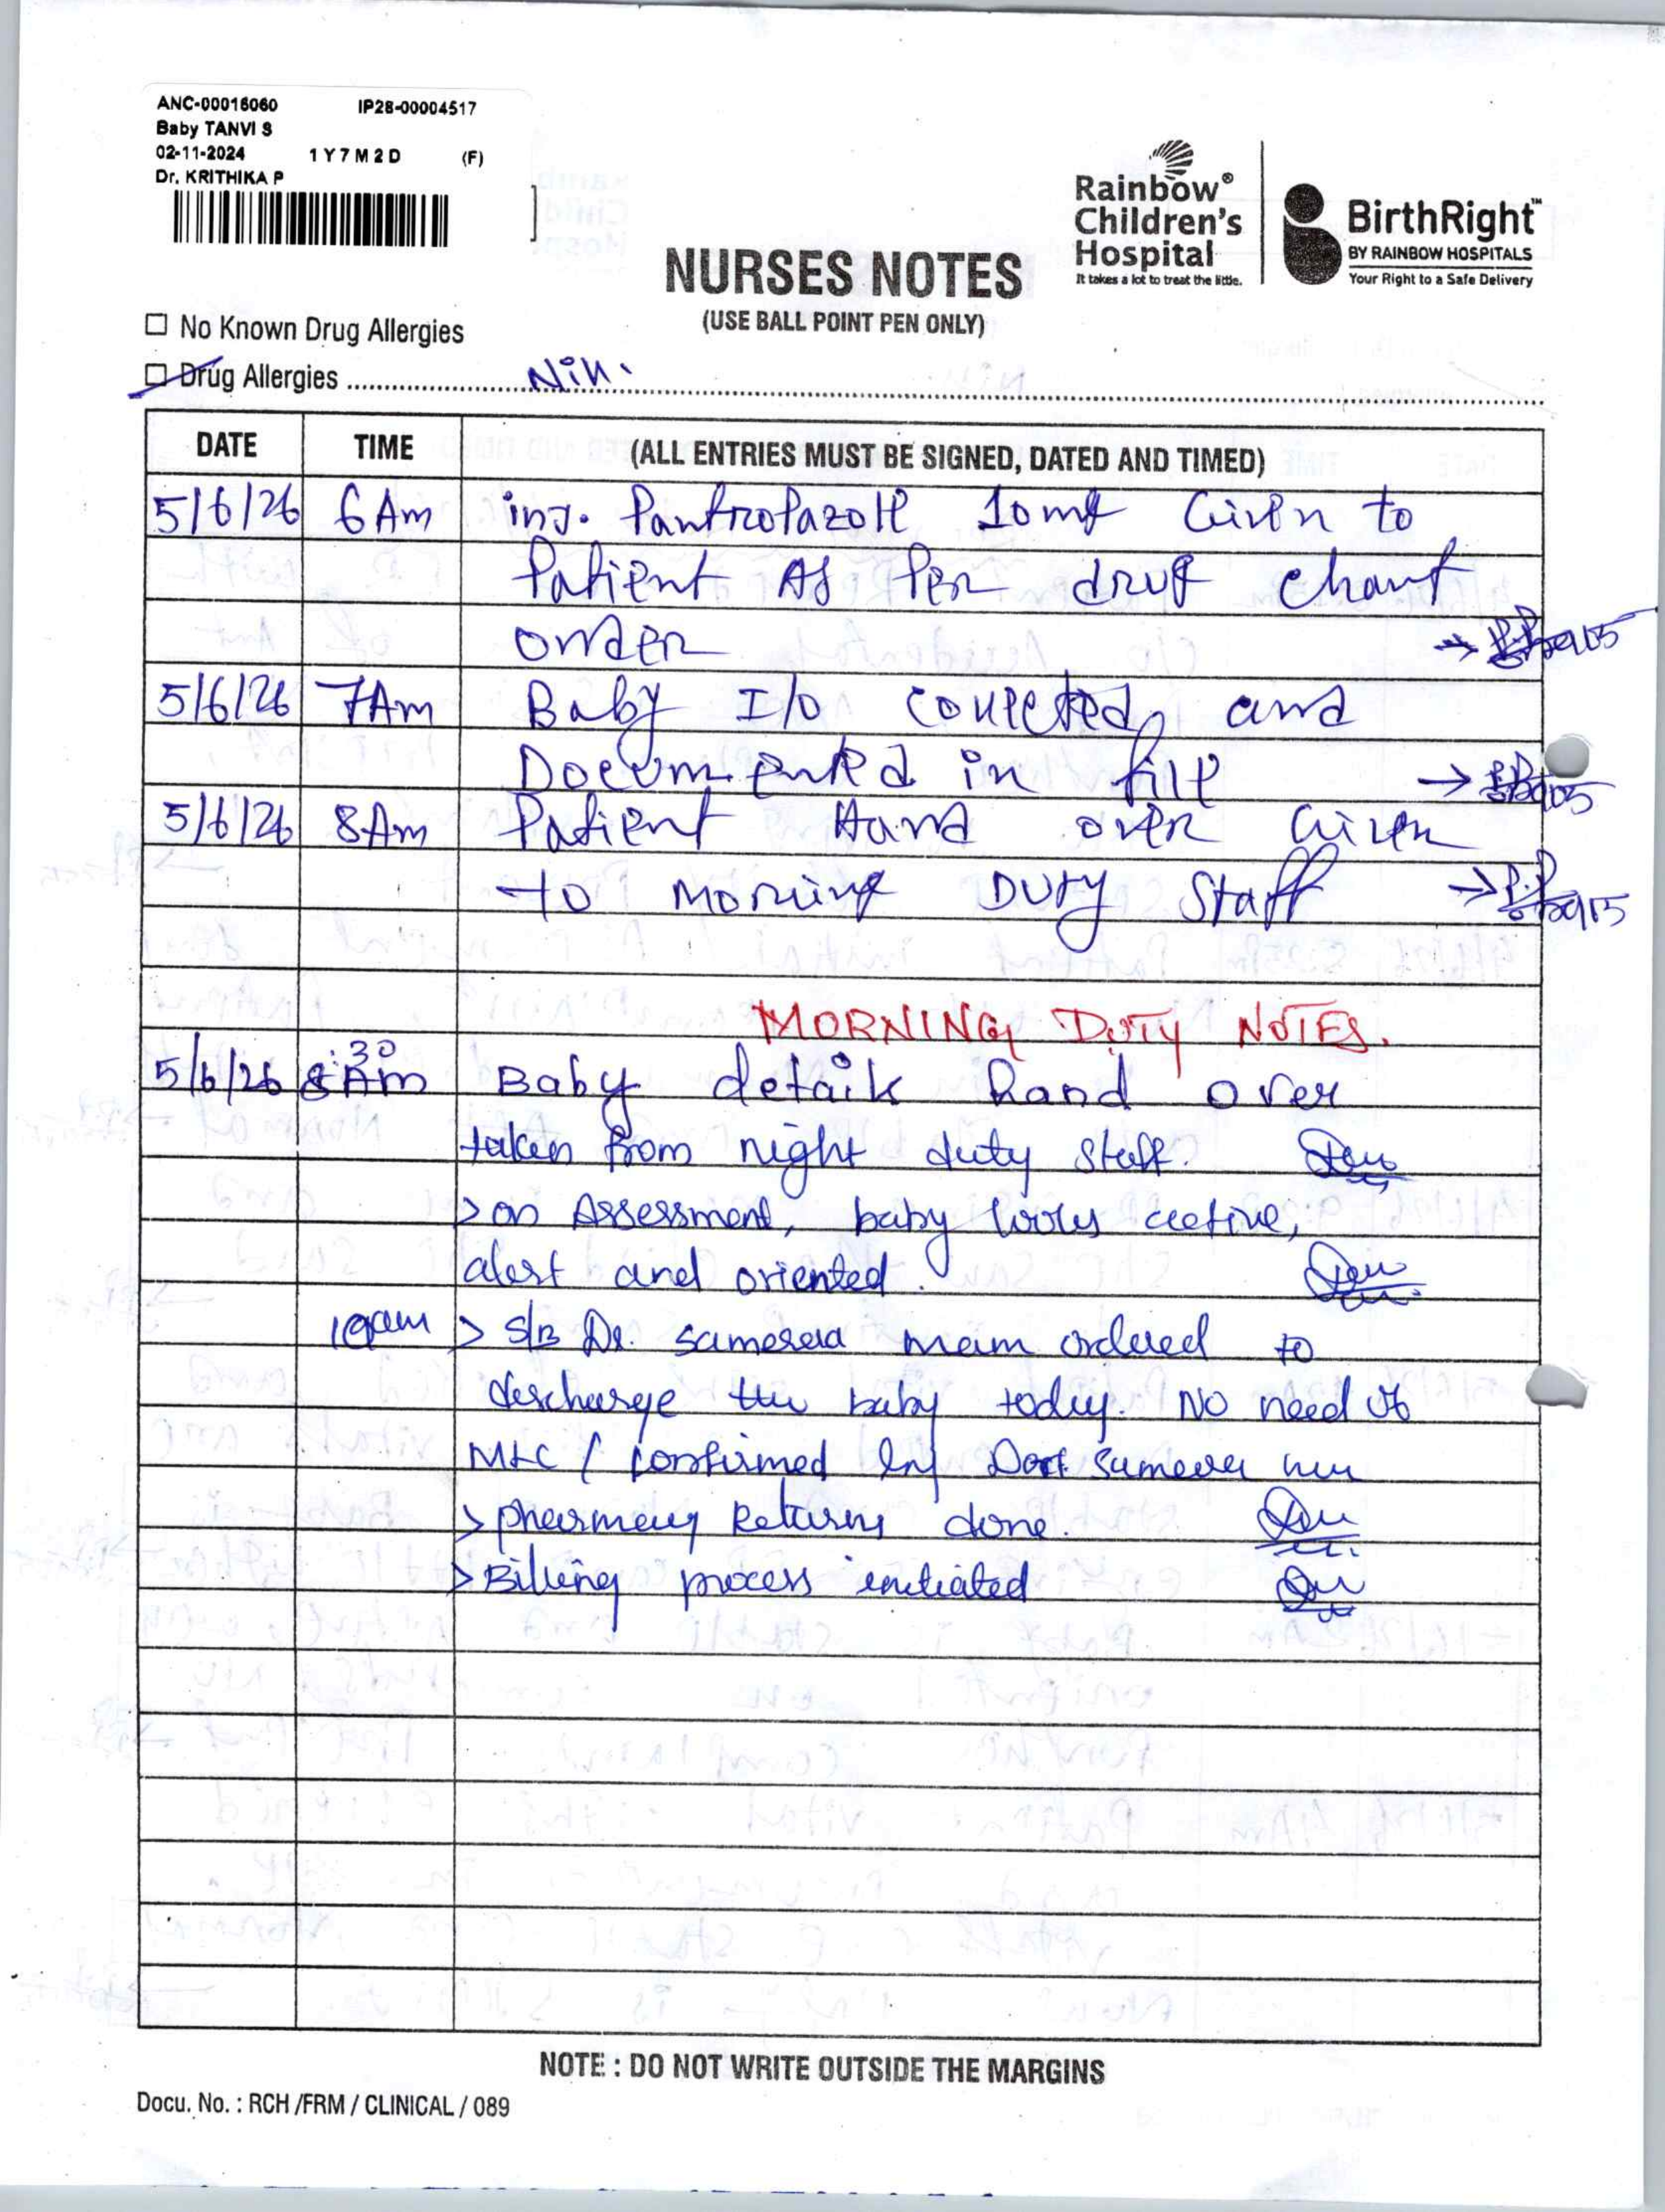 ANC-00016060 IP28-00004517
Baby TANVI S
02-11-2024 1 Y 7 M 2 D (F)
Dr. KRITHIKA P
Rainbow®
Children's
Hospital
It takes a lot to treat the little.
BirthRight™
BY RAINBOW HOSPITALS
Your Right to a Safe Delivery
NURSES NOTES
(USE BALL POINT PEN ONLY)
☐ No Known Drug Allergies
☐ Drug Allergies Nill.
DATE TIME (ALL ENTRIES MUST BE SIGNED, DATED AND TIMED)
5/6/26 6 Am inj. Pantropazole 10mg Given to
Patient As Per drug chart
order →
5/6/26 7Am Baby I/o collected, and
Documented in file →
5/6/26 8Am Patient Hand over Given
to Morning Duty Staff →
MORNING DUTY NOTES.
5/6/26 8:30 Am Baby details hand over
taken from night duty staff.
> on Assessment, baby looks active,
alert and oriented.
10am > S/B Dr. mam ordered to
discharge the baby today. No need of
MLC / confirmed by
> pharmacy Returns done.
> Billing process initiated
NOTE : DO NOT WRITE OUTSIDE THE MARGINS
Docu. No. : RCH /FRM / CLINICAL / 089